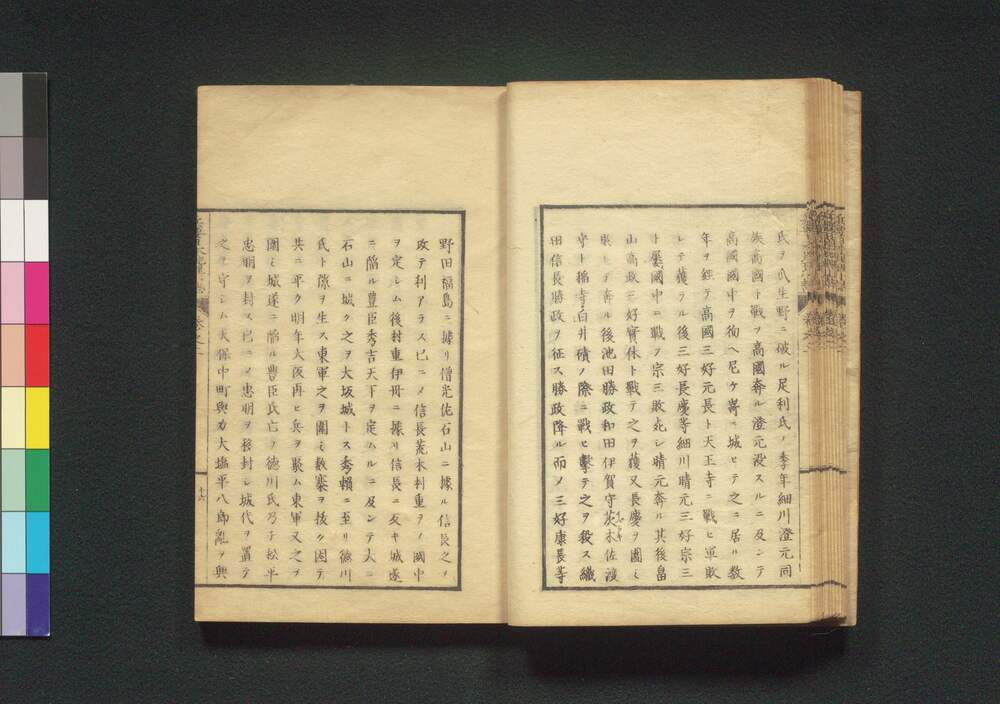 氏ヲ瓜生野ニ破ル足利氏ノ季年細川澄元同
族高國ト戰フ高國奔ル澄元沒スルニ及ンテ
高國國中ヲ徇ヘ尼ケ崎ニ城ヒテ之ニ居ル數
年ヲ經テ高國三好元長ト天王寺ニ戰ヒ軍敗
レテ獲ラル後三好長慶等細川晴元三好宗三
ト屢國中ニ戰フ宗三敗死シ晴元奔ル其後畠
山高政三好實休ト戰テ之ヲ獲又長慶ヲ圍ミ
敗レテ奔ル後池田勝政和田伊賀守茨木佐渡
守ト稲寺白井磧ノ際ニ戰ヒ擊テ之ヲ殺ス織
田信長勝政ヲ征ス勝政降ル而ノ三好康長等
野田福島ニ據リ僧光佐石山ニ據ル信長之ヲ
攻テ利アラス已ニメ信長荒木村重ヲノ國中
ヲ定シム後村重伊丹ニ據リ信長ニ反キ城遂
ニ陷ル豐臣秀吉天下ヲ定ムルニ及ンテ大ニ
石山ニ城ク之ヲ大坂城トス秀賴ニ至リ德川
氏ト隙ヲ生ス東軍之ヲ圍ミ數寨ヲ拔ク因テ
共ニ平ク明年大坂再ヒ兵ヲ聚ム東軍又之ヲ
圍ミ城遂ニ陷ル豐臣氏亡フ德川氏乃チ松平
忠明ヲ封ス已ニメ忠明ヲ移封シ城代ヲ置テ
之ヲ守シム天保中町與力大塩平八郎亂ヲ興
十六